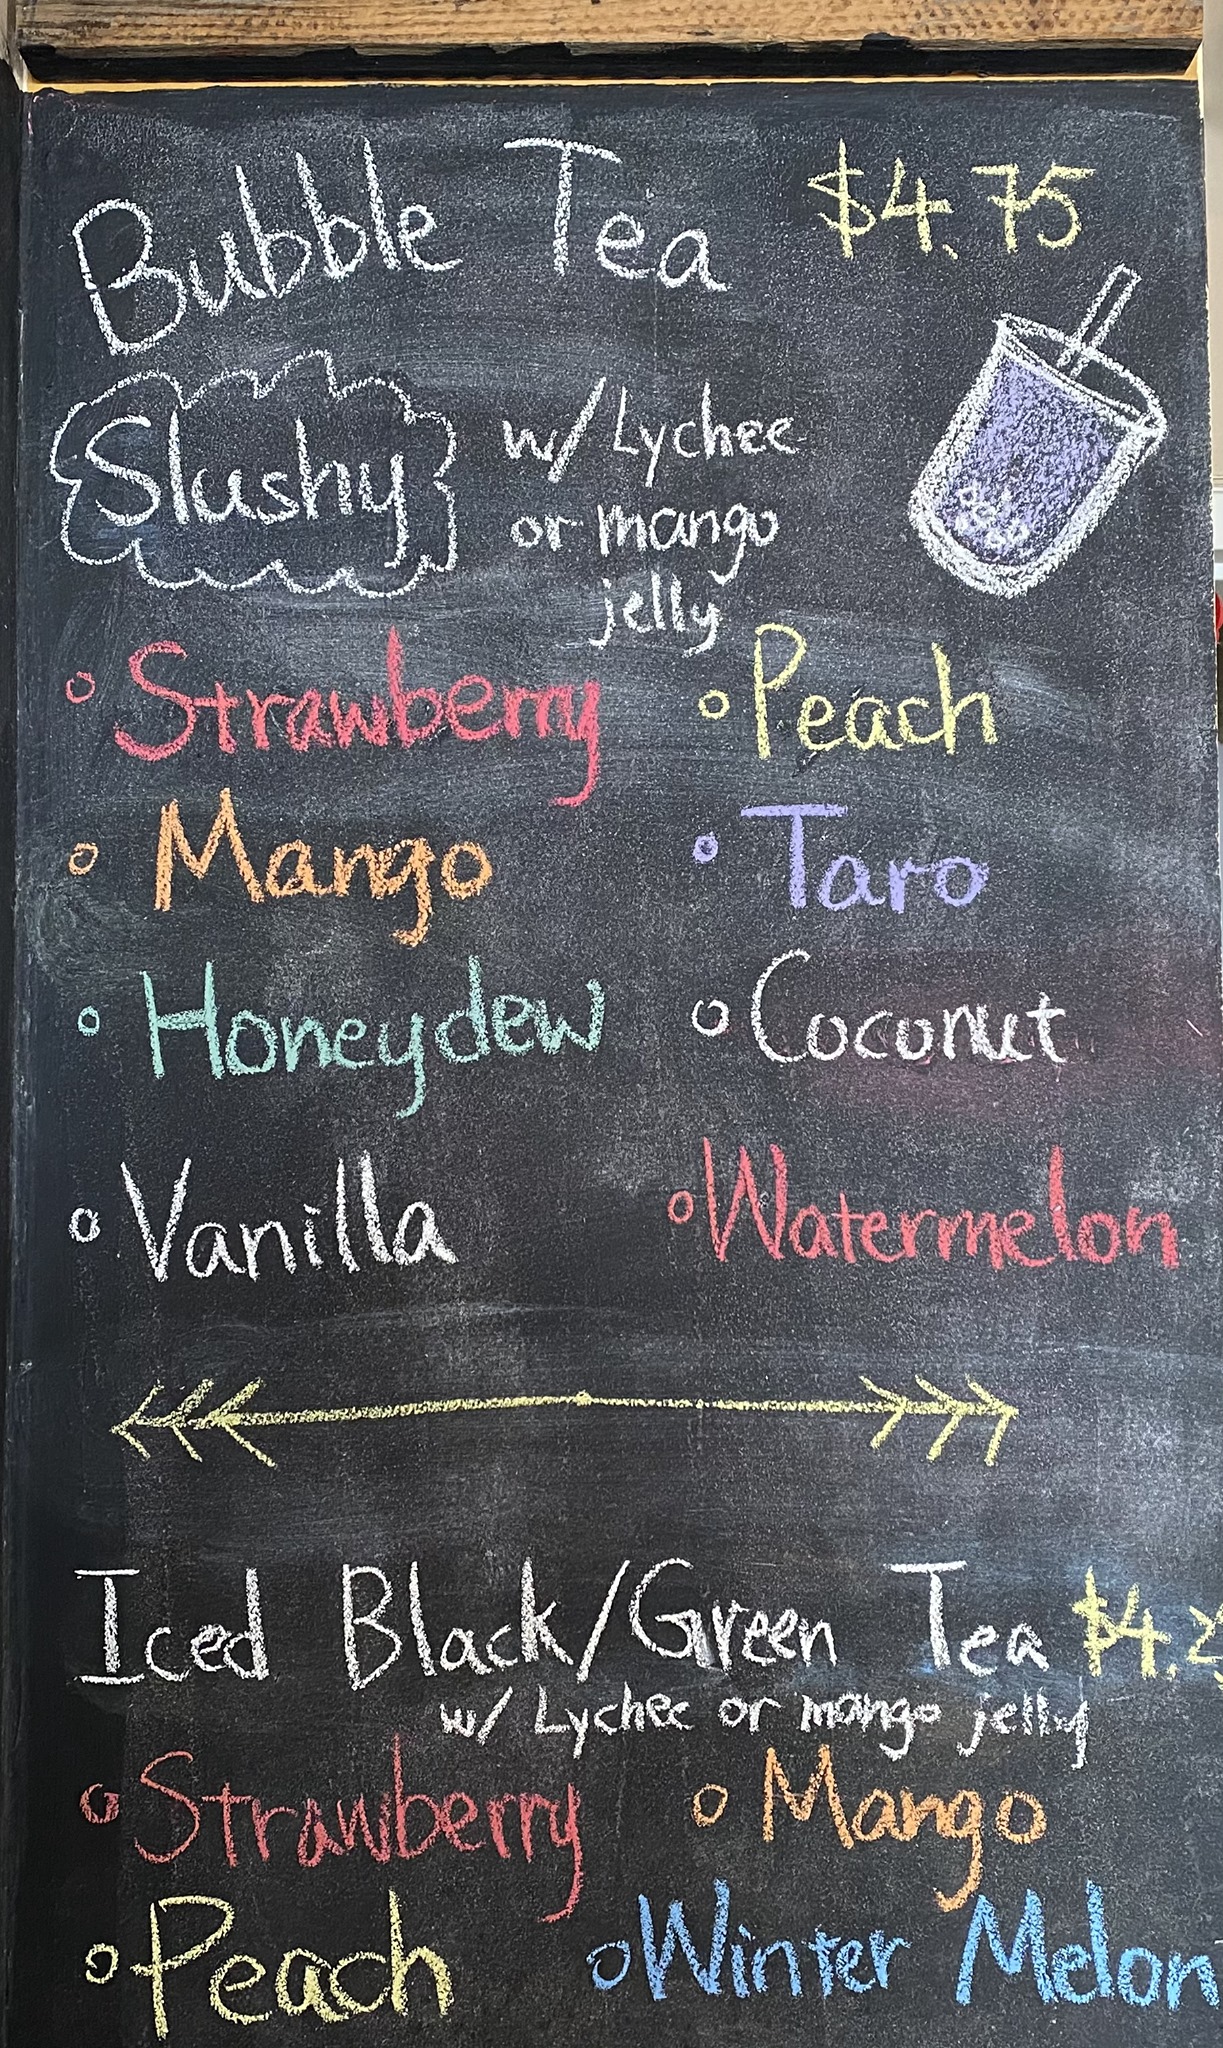 Bubble Tea $4.75
Slushy w/ Lychee
or mango
jelly
Strawberry Peach
Mango Taro
Honeydew Coconut
Vanilla Watermelon
Iced Black/Green Tea $4.2
w/ Lychee or mango jelly
Strawberry Mango
Peach Winter Melon